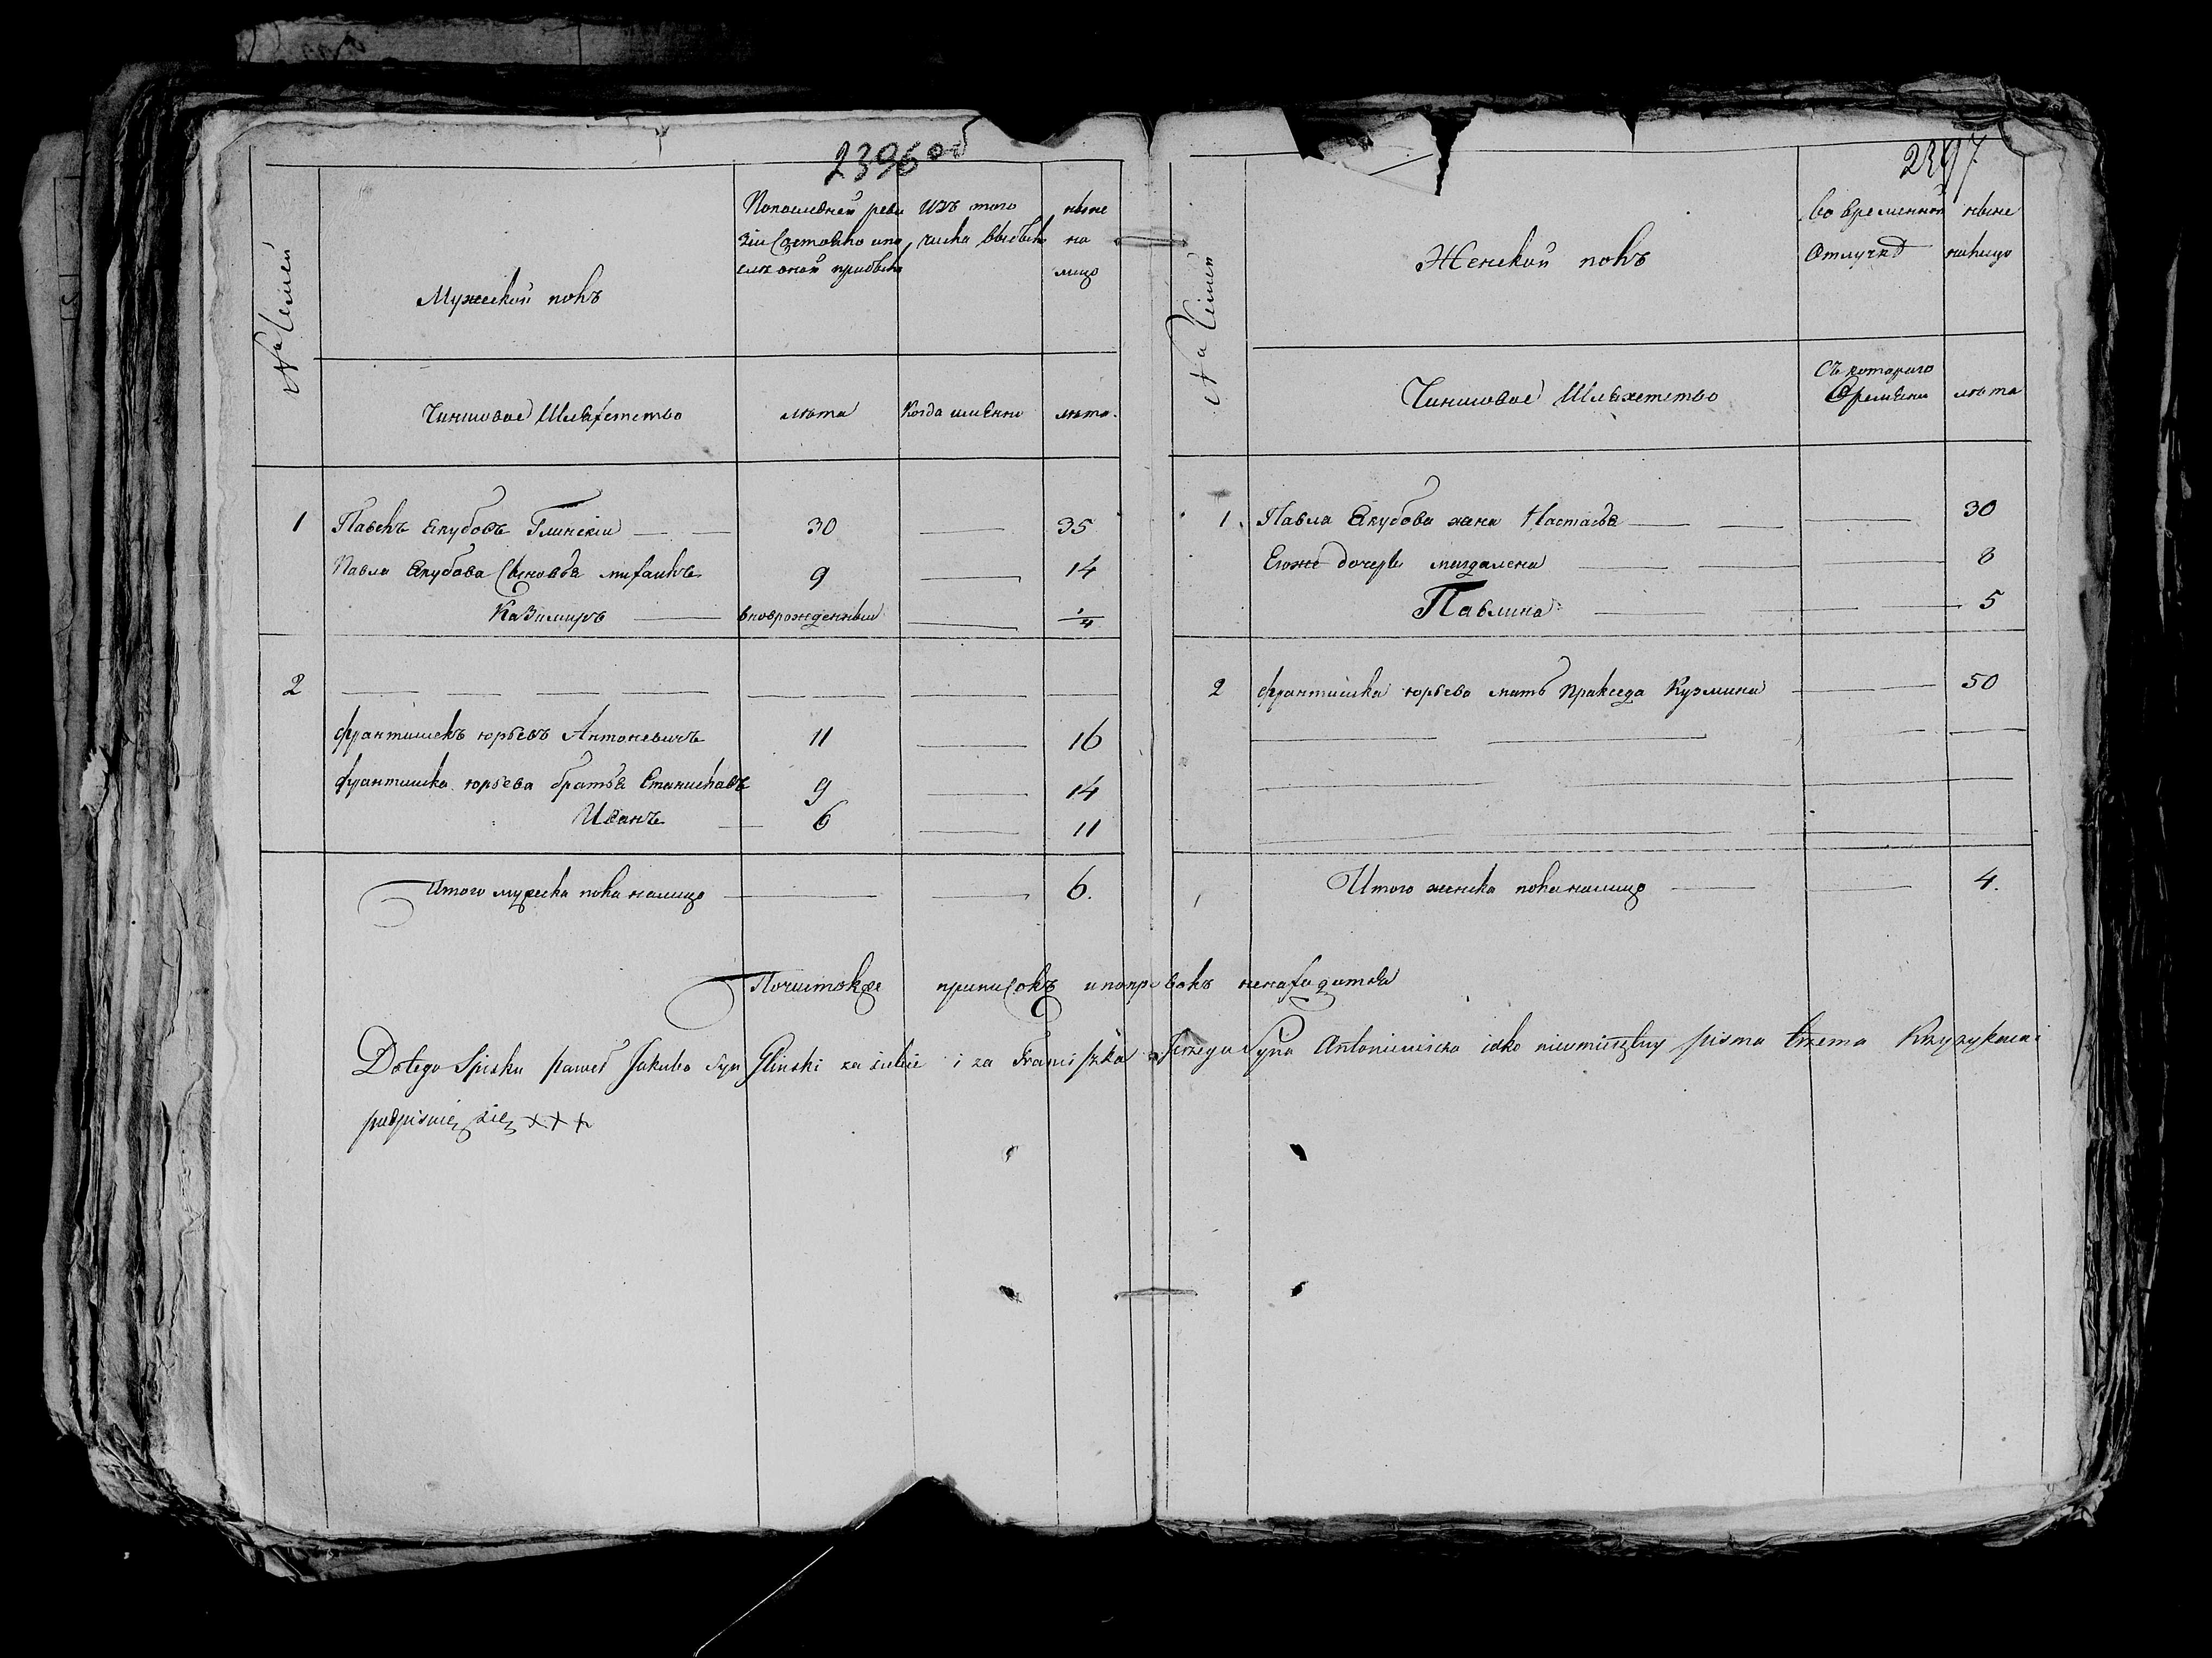 2396 об
№ Семей
Мужеской полъ
Попоследней реви
зіи состояло ипо
сле оной прибыло
Изъ того
числа выбыло
ныне
на
лицо
Чиншовое Шляхетство
лета
Когда именно
лета.
1 Павелъ Якубовъ Глинскіи 30 35
Павла Якубова Сыновья михаилъ 9 14
Казимиръ вноврожденныи 1/4
2
франтишекъ юрьевъ Антоневичъ 11 16
франтишка юрьева братья Станиславъ 9 14
Иванъ 6 11
Итого мужеска пола налицо 6.
2397
№ Семей
Женской полъ
во временной
Отлучке
ныне
налицо
Чиншовое Шляхетство
Съ котораго
Времени
лета
1. Павла Якубова жена Настасья 30
Егоже дочери магдалена 8
Павлина 5
2 франтишка юрьева мать Праксeда Кузмина 50
Итого женска пола налицо 4.
Почистокже приписокъ ипоправокъ ненаходится
Dotego Spisku paweł Jakuba Syn Glinski za siebie i za Franciszka Jerzego Syna Antoniewicza iako nieumieiętny pisma trzema Krzyzykami
podpisuię się x x x